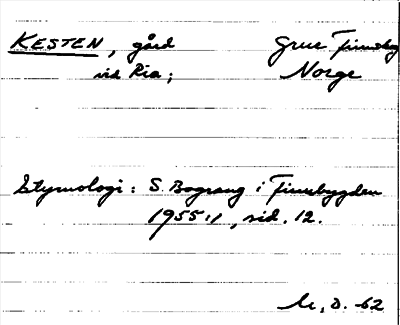 KESTEN, gård Grue Finnskog
vid Ria; Norge
Etymologi: S. Bograng i Finnbygden
1955:1, sid. 12.
62